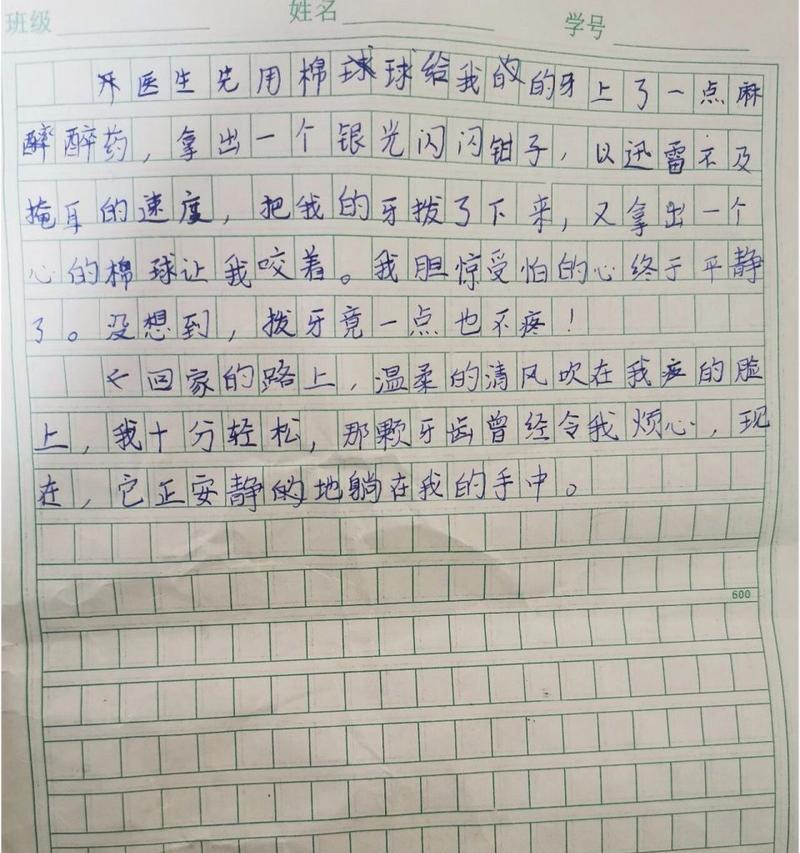 班级 姓名 学号
医生先用棉球给我的牙上了一点麻
醉药，拿出一个银光闪闪钳子，以迅雷不及
掩耳的速度，把我的牙拨了下来，又拿出一个
心的棉球让我咬着。我胆惊受怕的心终于平静
了。没想到，拨牙竟一点也不疼！
回家的路上，温柔的清风吹在我的脸
上，我十分轻松，那颗牙齿曾经令我烦心，现
在，它正安静地躺在我的手中。
600